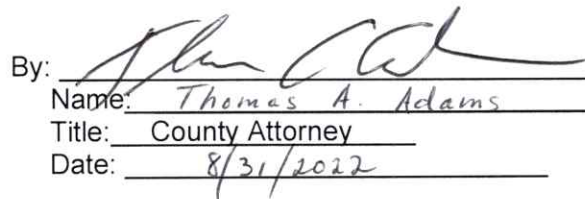 By:
Name: Thomas A. Adams
Title: County Attorney
Date: 8/31/2022